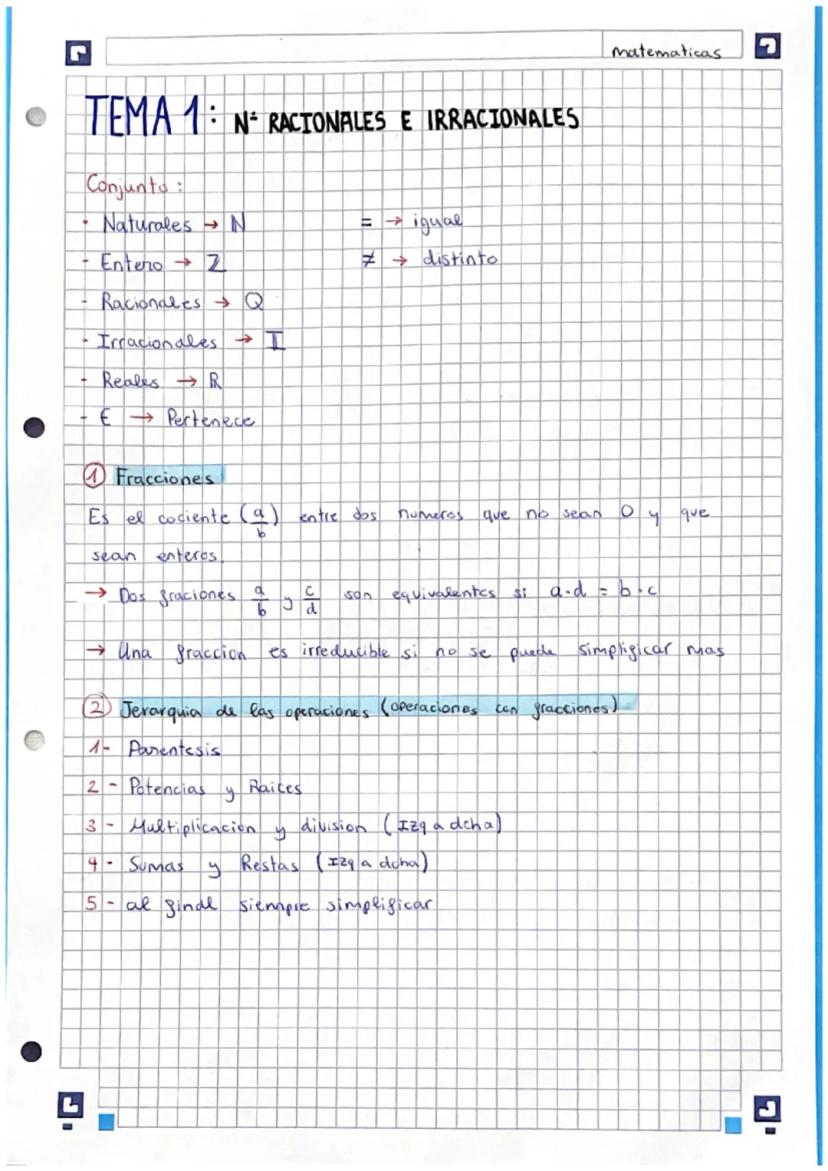 matematicas
TEMA 1: Nº RACIONALES E IRRACIONALES
Conjunto:
· Naturales → ℕ
= → igual
- Entero → ℤ
≠ → distinto
- Racionales → ℚ
- Irracionales → 𝕀
- Reales → ℝ
- € → Pertenece
① Fracciones
Es el cociente (a/b) entre dos numeros que no sean 0 y que
sean enteros.
→ Dos fraciones a/b y c/d son equivalentes si a·d = b·c
→ Una fraccion es irreducible si no se puede simplificar mas
② Jerarquia de las operaciones (operaciones con fracciones)
1- Parentesis
2 - Potencias y Raices
3 - Multiplicacion y division (Izq a dcha)
4 - Sumas y Restas (Izq a dcha)
5 - al final siempre simplificar